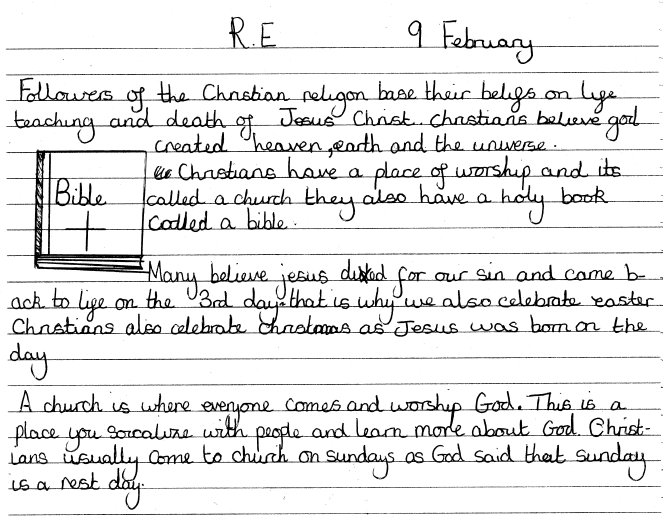 R.E 9 February
Followers of the Christian religon base their beliefs on life
teaching and death of Jesus Christ. Christians believe god
created heaven, earth and the universe.
Christians have a place of worship and its
called a church they also have a holy book
called a bible.
Bible
Many believe jesus died for our sin and came b-
ack to life on the 3rd day. that is why we also celebrate easter
Christians also celebrate christmas as Jesus was born on the
day
A church is where everyone comes and worship God. This is a
place you socalize with people and learn more about God. Christ-
ians usually come to church on sundays as God said that sunday
is a rest day.